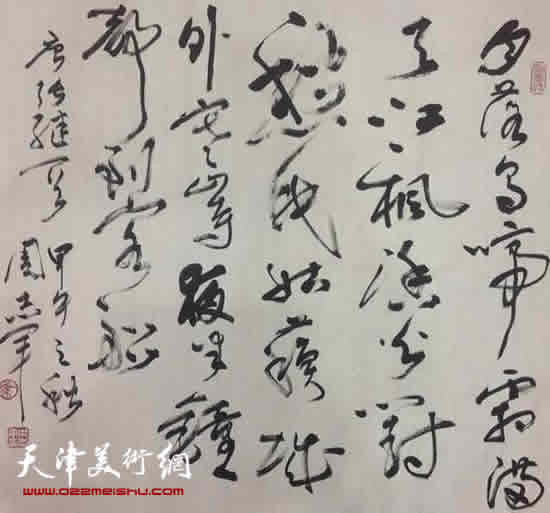 月落烏啼霜滿
天江楓漁火對
愁眠姑蘇城
外寒山寺夜半鐘
聲到客船
唐張繼一首
甲午之秋
周志軍
天津美術網
www.022meishu.com